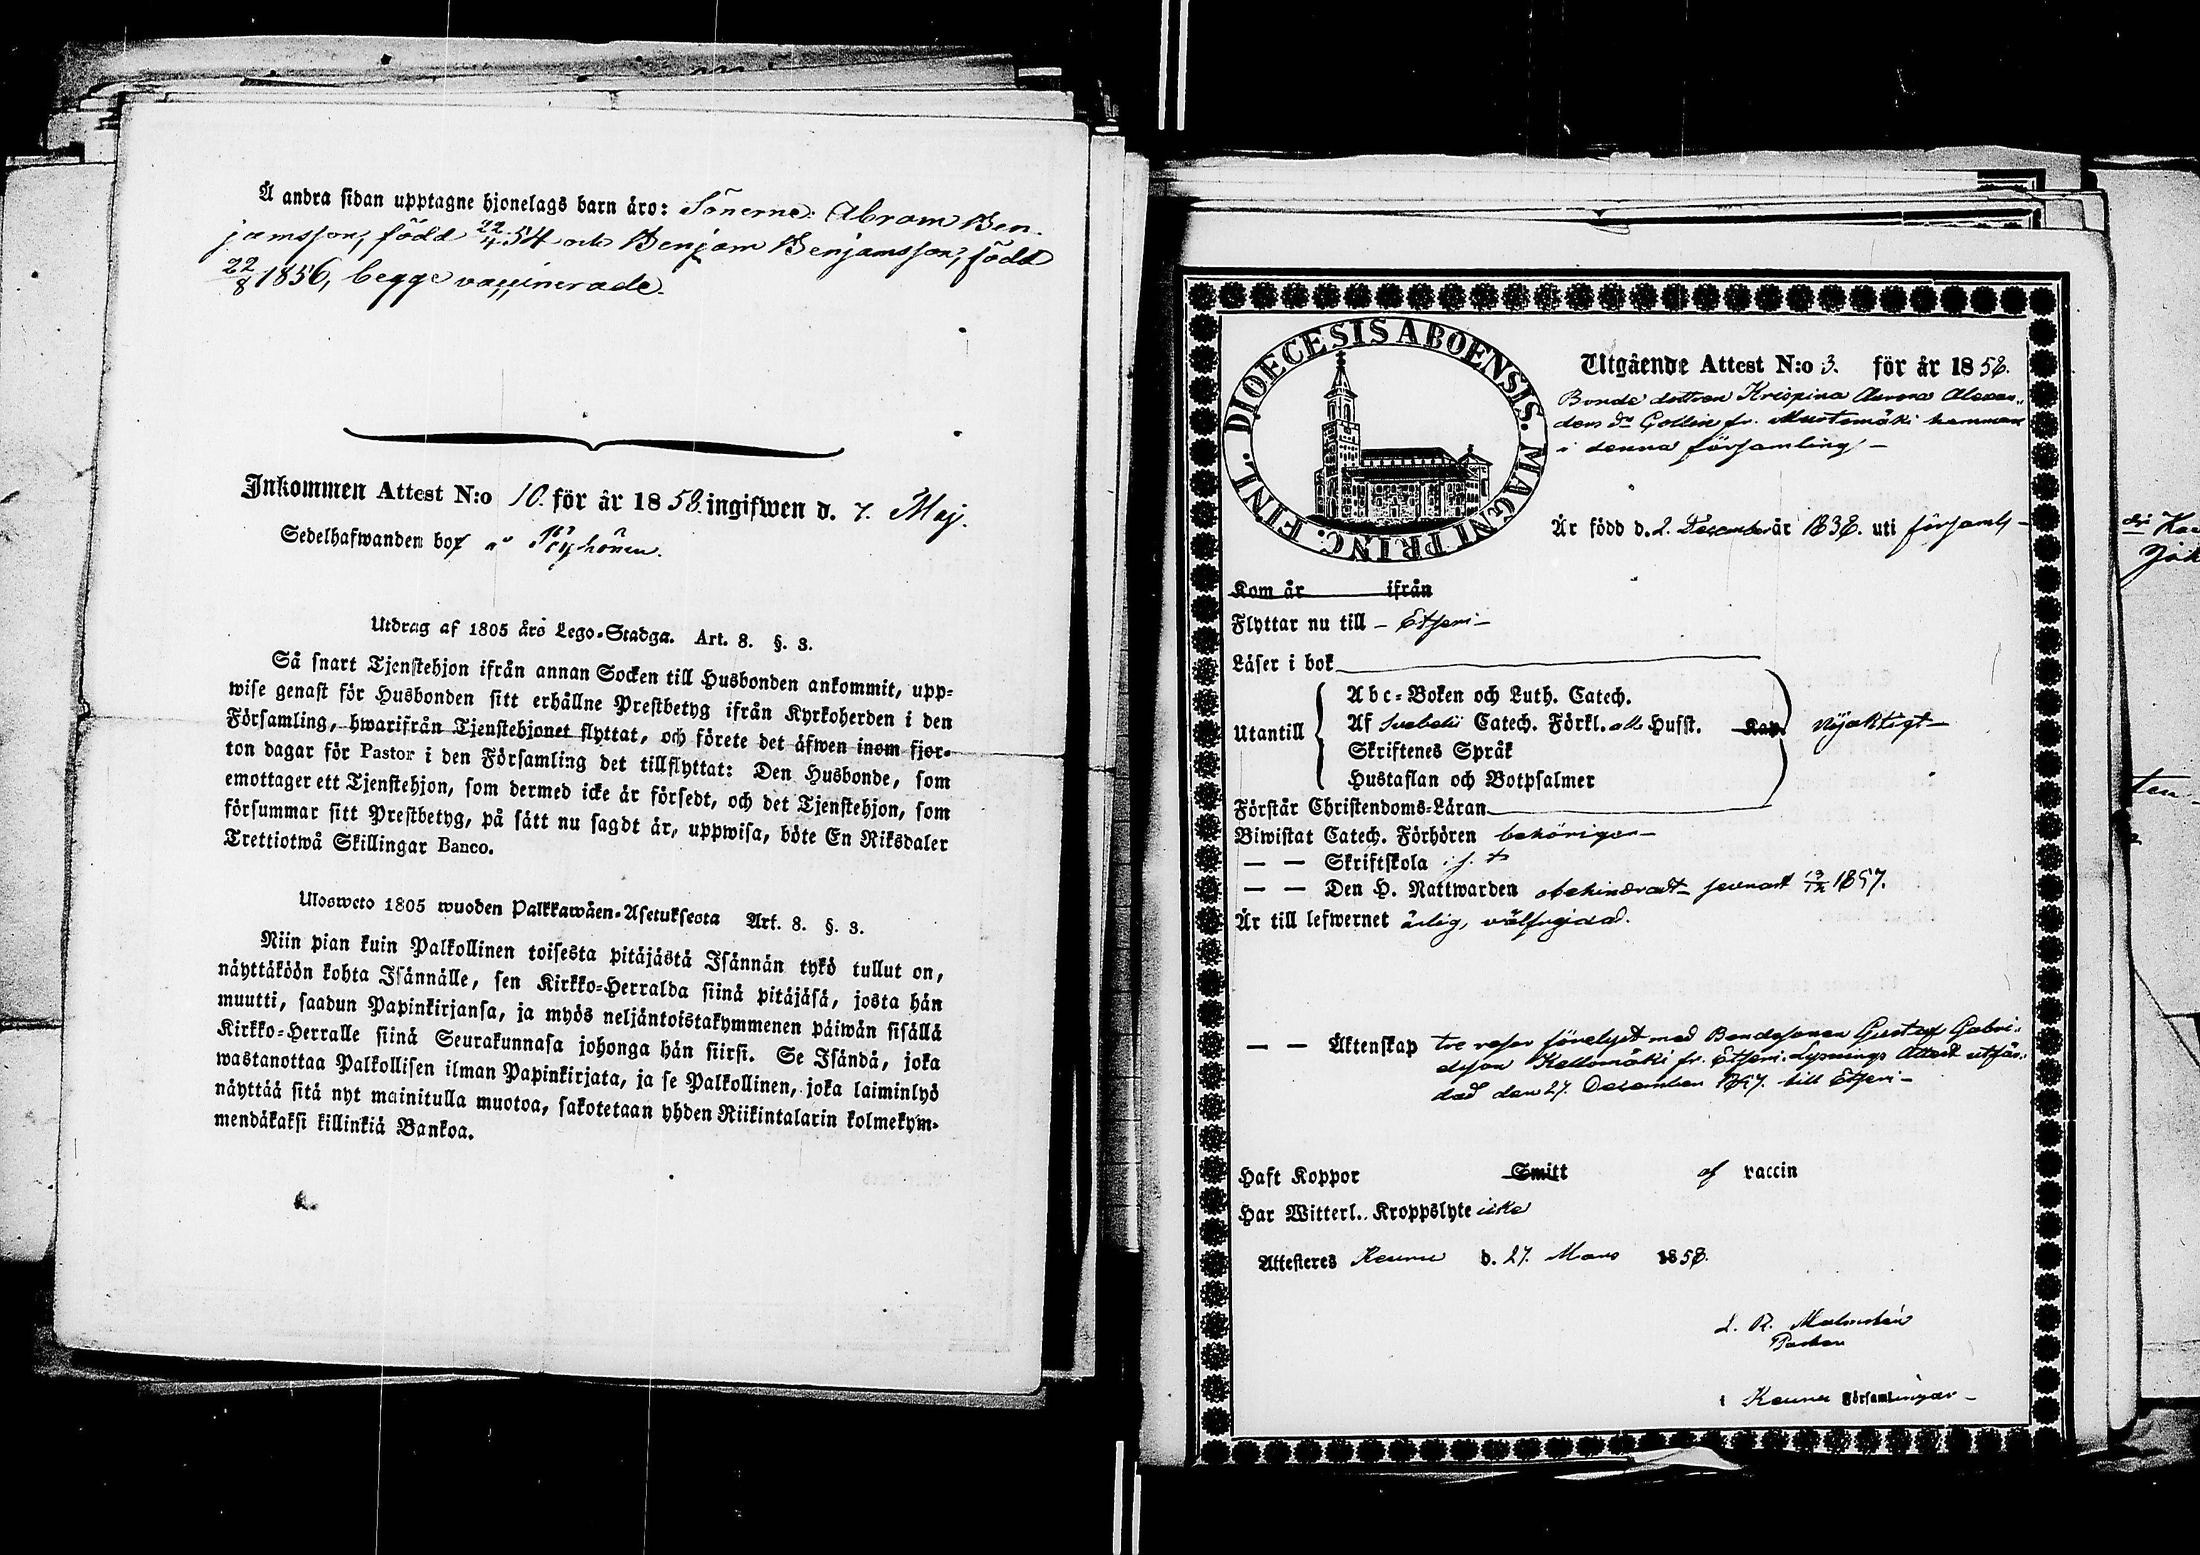 Å andra sidan upptagne hjonelags barn äro: Sönerne: Abram Ben-
jamsson, född 22/4 54 och Benjam Benjamsson, född
22/8 1856, begge vaccinerade.
Inkommen Attest N:o 10. för år 1858. ingifwen d. 7. Maj.
Sedelhafwanden bor å Pöyhönen.
Utdrag af 1805 års Lego-Stadga. Art. 8. §. 3.
Så snart Tjenstehjon ifrån annan Socken till Husbonden ankommit, upp-
wise genast för Husbonden sitt erhållne Prestbetyg ifrån Kyrkoherden i den
Församling, hwarifrån Tjenstehjonet flyttat, och förete det äfwen inom fjor-
ton dagar för Pastor i den Församling det tillflyttat: Den Husbonde, som
emottager ett Tjenstehjon, som dermed icke är försedt, och det Tjenstehjon, som
försummar sitt Prestbetyg, på sätt nu sagdt är, uppwisa, böte En Riksdaler
Trettiotwå Skillingar Banco.
Ulosweto 1805 wuoden Palkkawäen-Asetuksesta Art. 8. §. 3.
Niin pian kuin Palkollinen toisesta pitäjästä Isännän tykö tullut on,
näyttäköön kohta Isännälle, sen Kirkko-Herralda siinä pitäjäsä, josta hän
muutti, saadun Papinkirjansa, ja myös neljäntoistakymmenen päiwän sisällä
Kirkko-Herralle siinä Seurakunnasa johonga hän siirsi. Se Isändä, joka
wastanottaa Palkollisen ilman Papinkirjata, ja se Palkollinen, joka laiminlyö
näyttää sitä nyt mainitulla muotoa, sakotetaan yhden Riikintalarin kolmekym-
mendäkaksi killinkiä Bankoa.
DIOECESIS ABOENSIS. MAGNI PRINC. FINL.
Utgående Attest N:o 3. för år 1858.
Bonde dottren Krispina Aurora Alexan-
ders dr Gollin fr. Mustamäki hemman
i denna församling –
Är född d. 2. December år 1838. uti församl –
Kom år ifrån
Flyttar nu till – Etseri –
Läser i bok
Abc-Boken och Luth. Catech.
Utantill Af Svebelii Catech. Förkl. alla Hufst. Kap. nöjaktigt –
Skriftenes Språk
Hustaflan och Botpsalmer
Förstår Christendoms-Läran
Biwistat Catech. Förhören behörigen –
— — Skriftskola
— — Den H. Nattwarden obehindradt senast 13/12 1857.
Är till lefwernet ärlig, välfrejdad.
— — Äktenskap tre resor förelyst med Bondesonen Gustaf Gabri-
elsson Kellomäki fr. Etseri. Lysnings Attest utfär-
dad den 27. December 1857. till Etseri –
Haft Koppor Smitt af vaccin
Har Witterl. Kroppslyte icke
Attesteres Keuru d. 27. Mars 1858.
L. R. Malmstén
Pastor
i Keuru Församlingar –